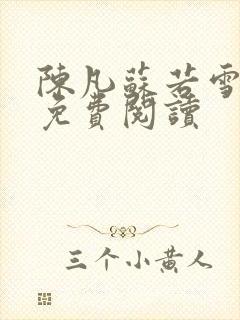 陳凡蘇若雪
免費閱讀
三个小黄人